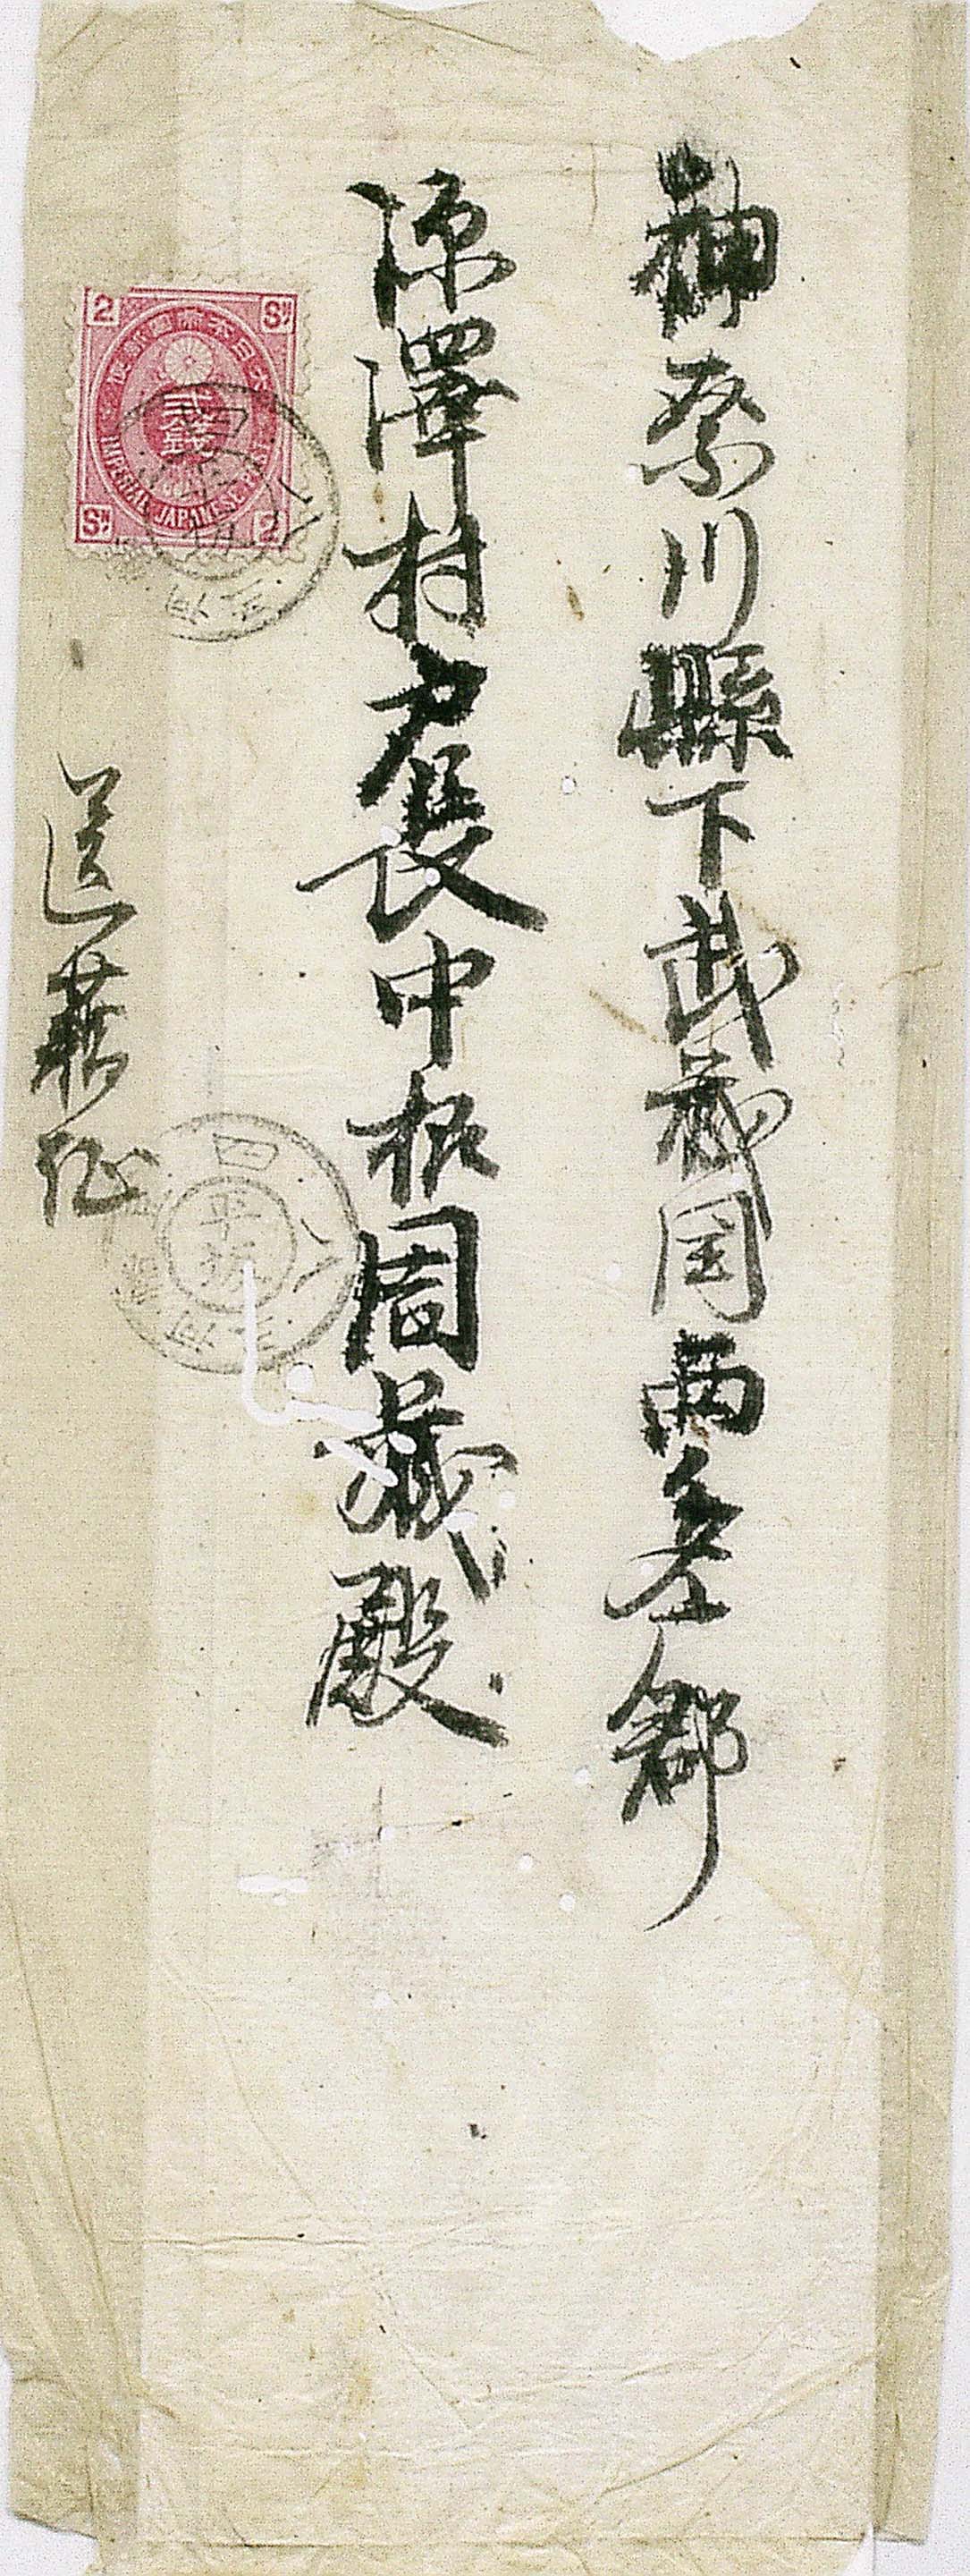 神奈川縣下武蔵国西多摩郡
深澤村戸長中根周蔵殿
送籍証
2 Sn
大日本帝國郵便
貳錢
IMPERIAL JAPANESE POST
Sn 2